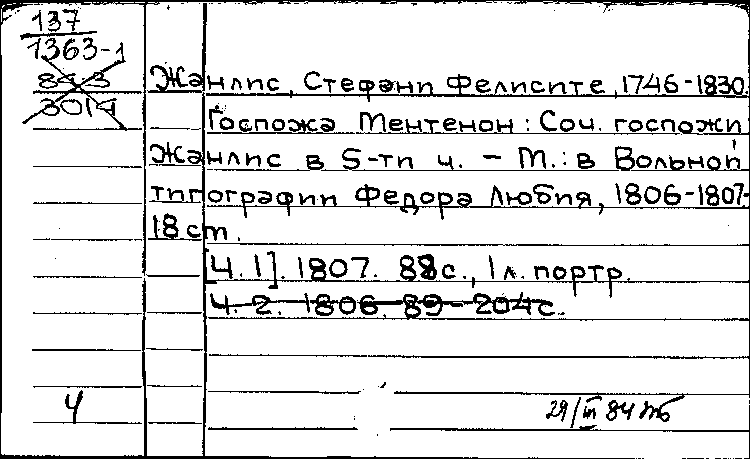 137
1363-1
8913
3014
Жанлис, Стефани Фелисите, 1746-1830.
Госпожа Ментенон: Соч. госпожи
Жанлис в 5-ти ч. – М.: в Вольной
типографии Федора Любия, 1806-1807.-
18 см.
[Ч. 1]. 1807. 88 с., 1 л. портр.
Ч. 2. 1806. 89-204 с.
Ч
29/III 84